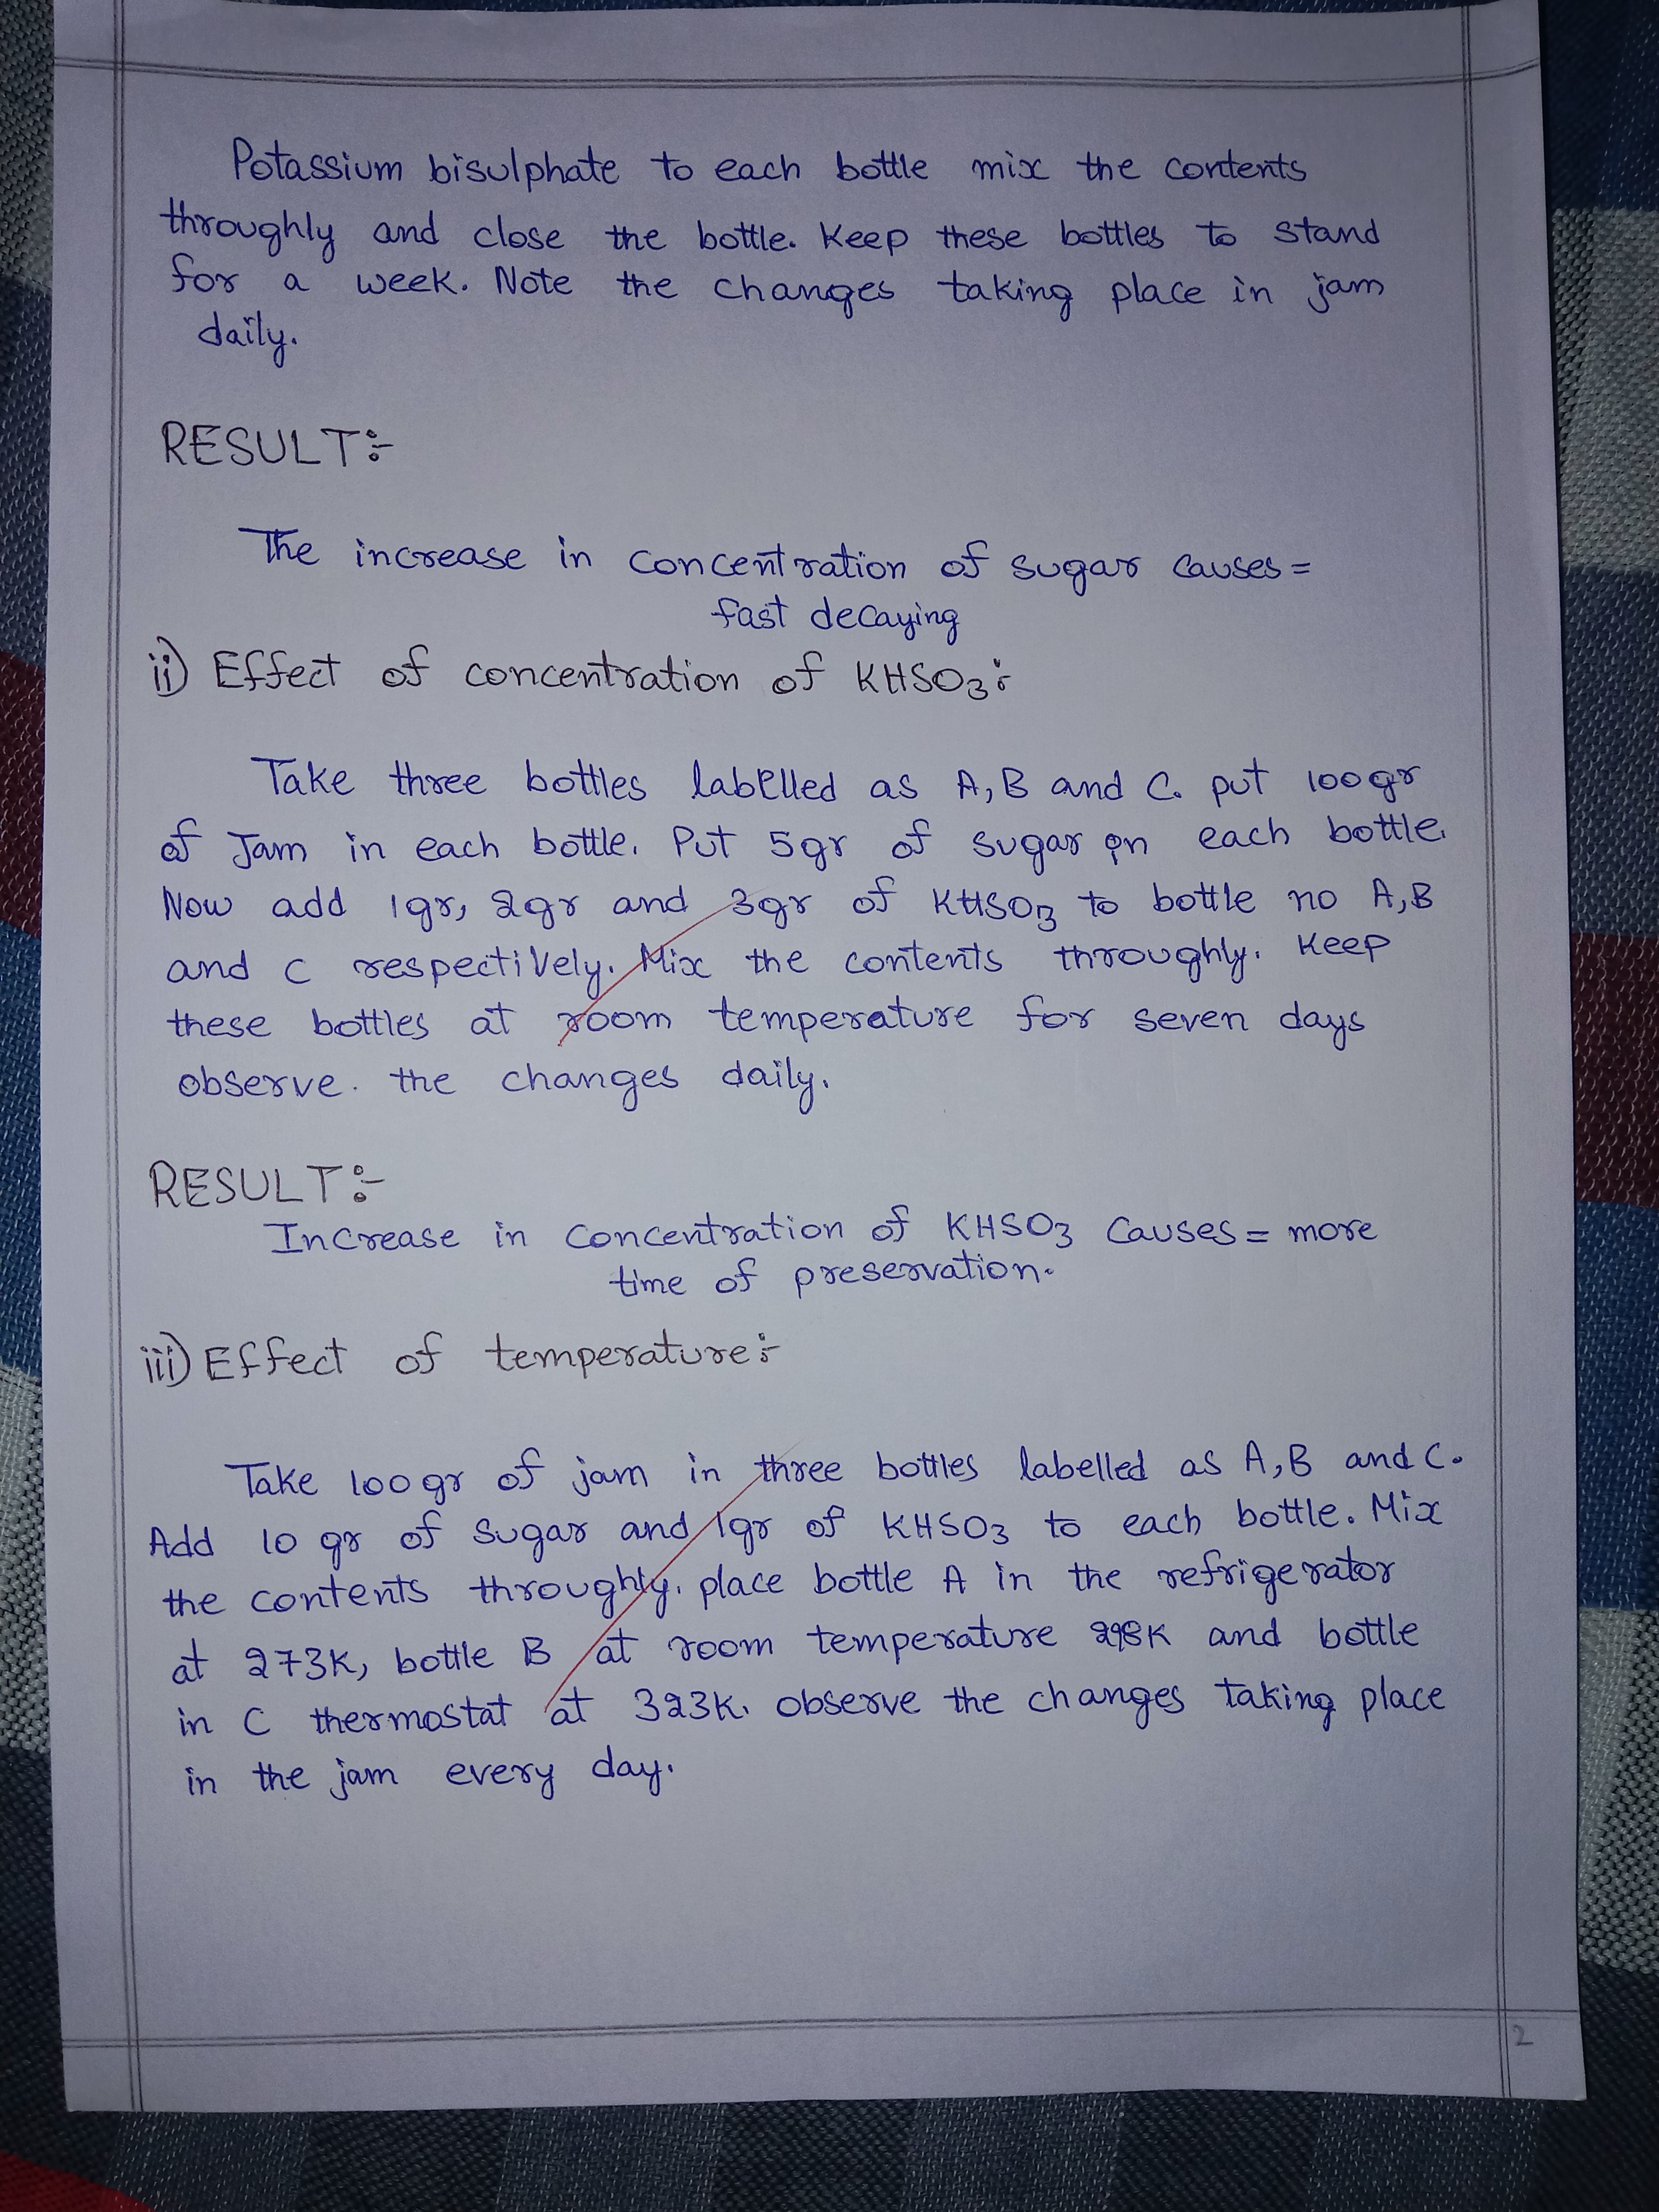 Potassium bisulphate to each bottle mix the contents
throughly and close the bottle. Keep these bottles to stand
for a week. Note the changes taking place in jam
daily.
RESULT:-
The increase in concentration of sugar causes =
fast decaying
ii) Effect of concentration of KHSO3:-
Take three bottles labelled as A, B and C. put 100gr
of Jam in each bottle. Put 5gr of sugar in each bottle.
Now add 1gr, 2gr and 3gr of KHSO3 to bottle no A, B
and C respectively. Mix the contents throughly. Keep
these bottles at room temperature for seven days
observe. the changes daily.
RESULT:-
Increase in concentration of KHSO3 causes = more
time of preservation.
iii) Effect of temperature:-
Take 100gr of jam in three bottles labelled as A, B and C.
Add 10 gr of sugar and 1gr of KHSO3 to each bottle. Mix
the contents throughly. place bottle A in the refrigerator
at 273K, bottle B at room temperature 298K and bottle
in C thermostat at 323K. observe the changes taking place
in the jam every day.
2